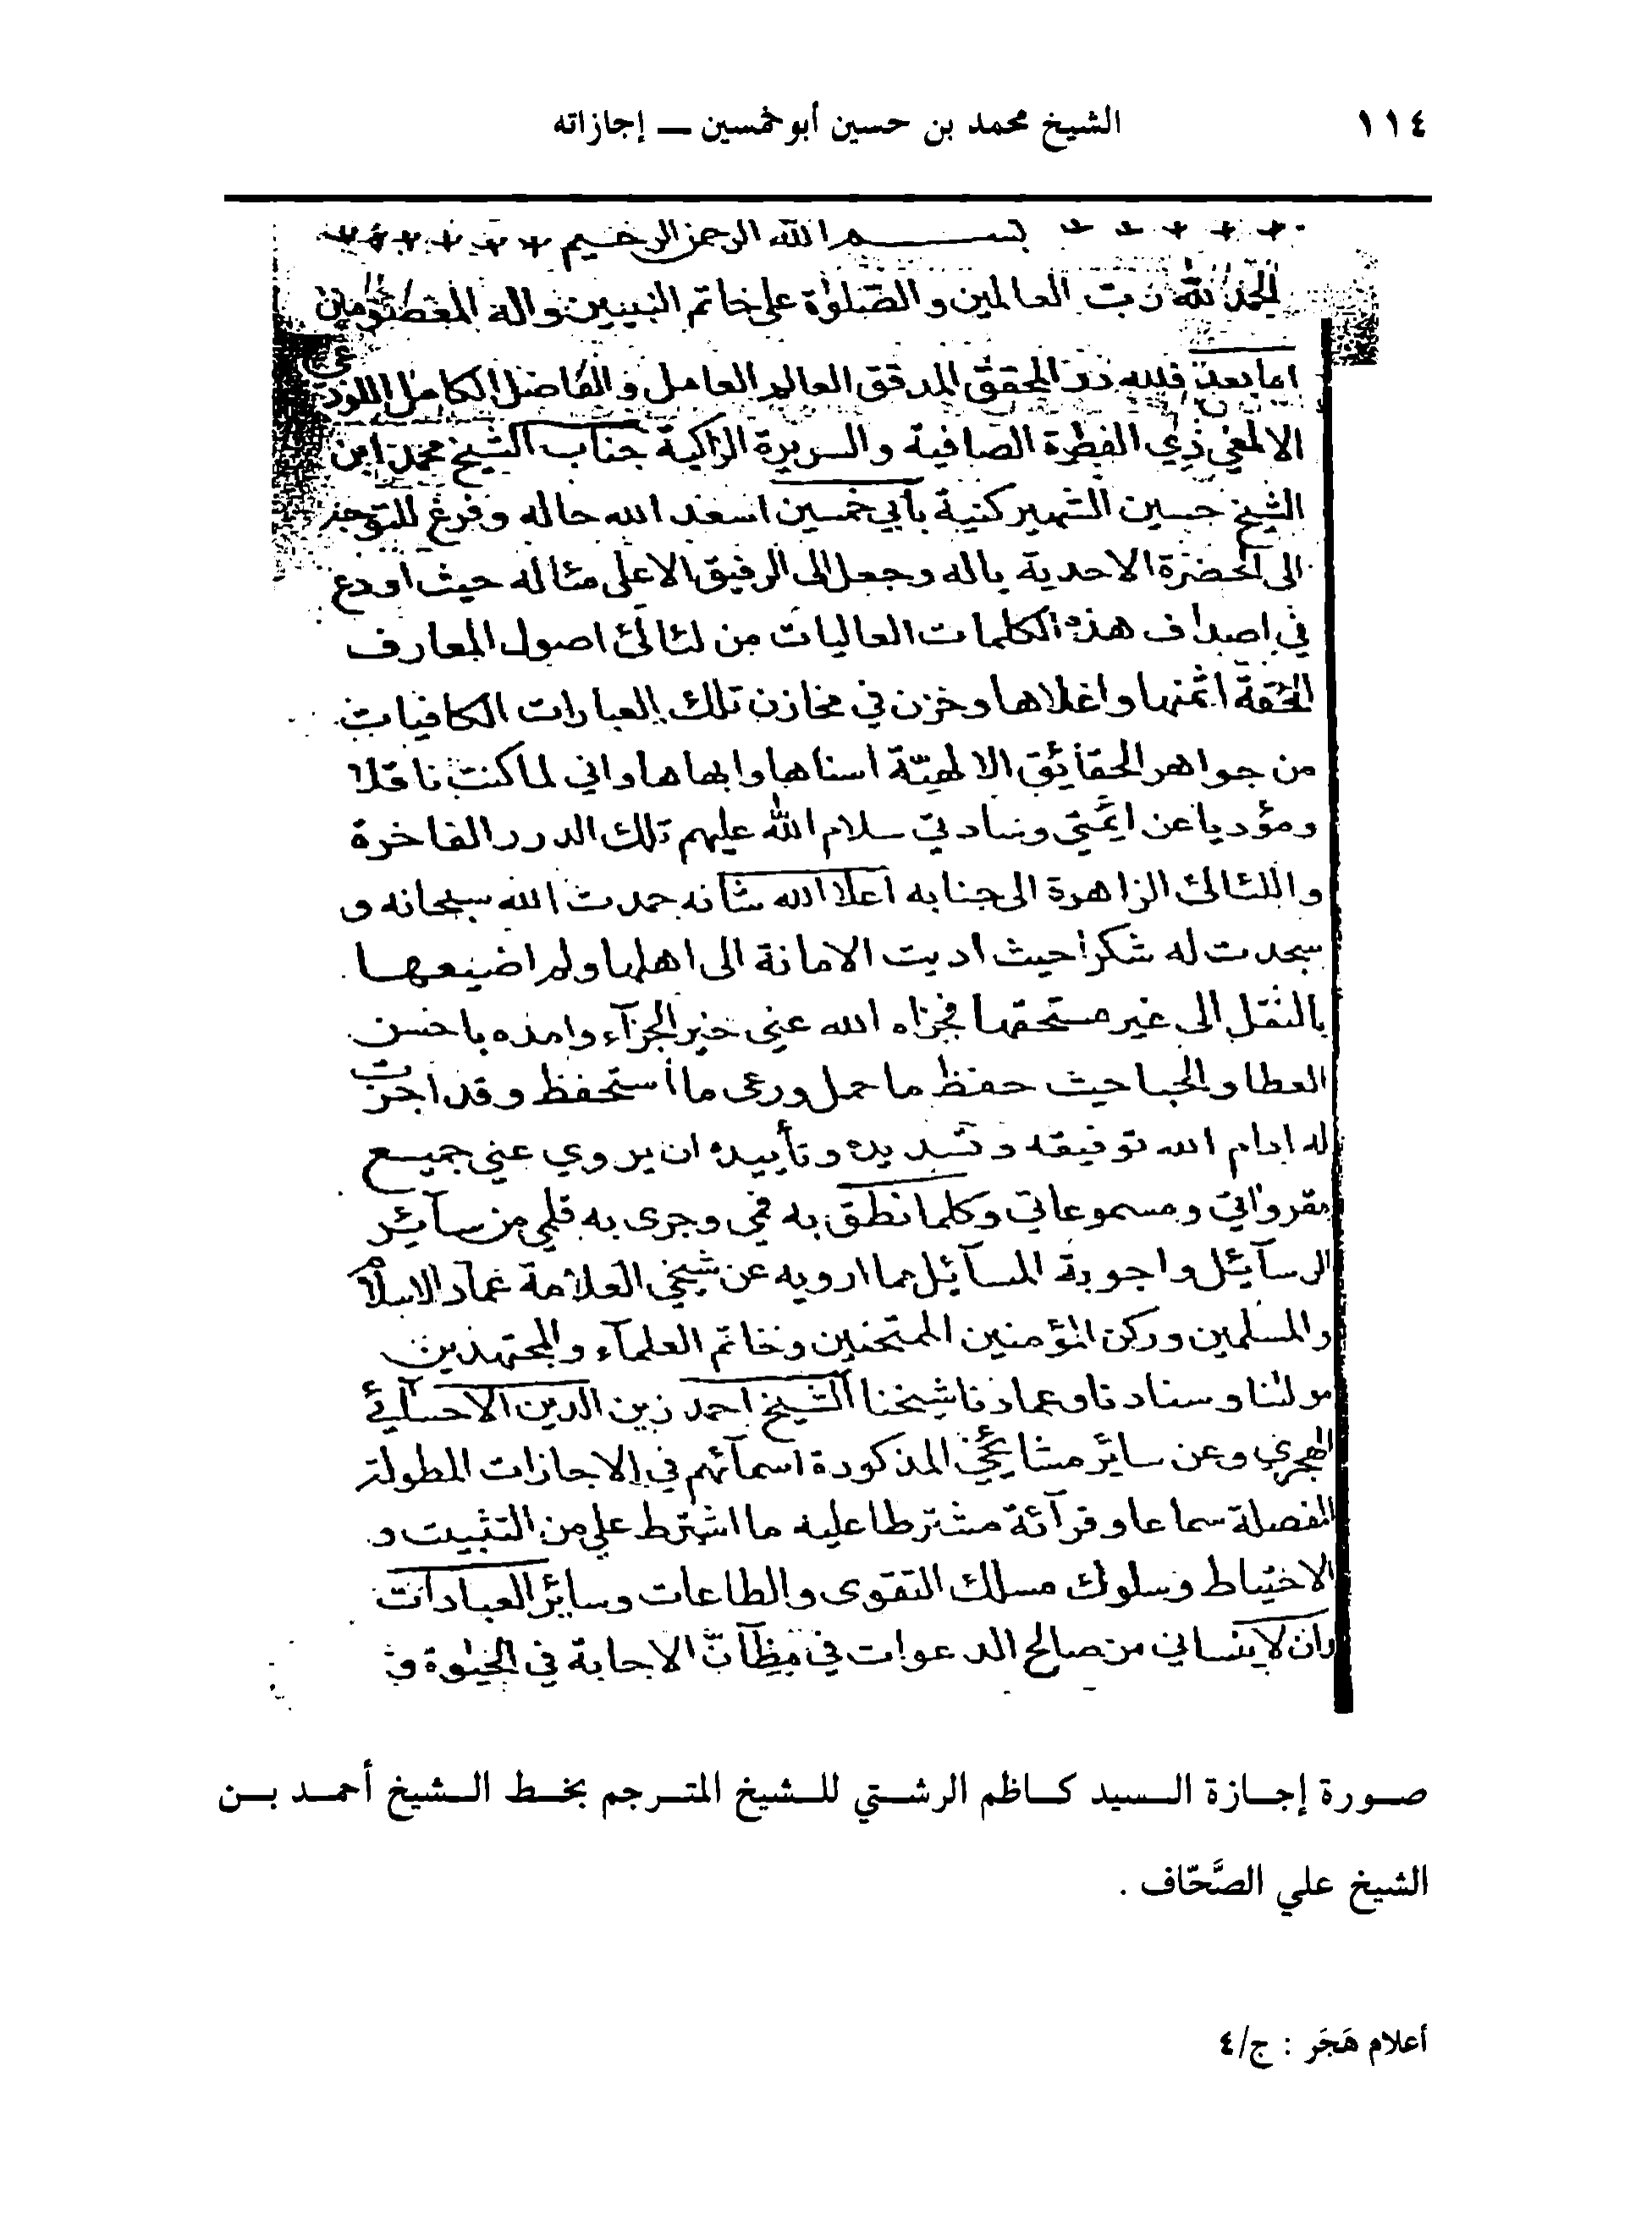 ١١٤ الشيخ محمد بن حسين أبو خمسين ــ إجازاته
بسم الله الرحمن الرحيم
الحمد لله رب العالمين والصلوة على خاتم النبيين واله المعصومين
اما بعد فلله در المحقق المدقق العالم العامل والفاضل الكامل اللوذعي
الالمعي ذي الفطرة الصافية والسريرة الزاكية جناب الشيخ محمد ابن
الشيخ حسين الشهير كنية بابي خمسين اسعد الله حاله وفرغ للتوجه
الى الحضرة الاحدية باله وجعل الى الرفيق الاعلى مئاله حيث اودع
في اصداف هذه الكلمات العاليات من لئالئ اصول المعارف
الحقة اثمنها واغلاها وخزن في مخازن تلك العبارات الكافيات
من جواهر الحقائق الالهيّة اسناها وابهاها واني لما كنت ناقلا
ومؤديا عن ائمتي وساداتي سلام الله عليهم تلك الدرر الفاخرة
واللئالئ الزاهرة الى جنابه اعلا الله شانه حمدت الله سبحانه و
سجدت له شكرا حيث اديت الامانة الى اهلها ولم اضيعها
بالنقل الى غير مستحقها فجزاه الله عني خير الجزآء وامده باحسن
العطا والحبا حيث حفظ ما حمل ورعى ما استحفظ وقد اجزت
له ادام الله توفيقه وتسديده وتأييده ان يروي عني جميع
مقرواتي ومسموعاتي وكلما نطق به فمي وجرى به قلمي من سآئر
الرسآئل واجوبة المسآئل مما ارويه عن شيخي العلامة عماد الاسلام
والمسلمين وركن المؤمنين الممتحنين وخاتم العلمآء والمجتهدين
مولٰنا وسنادنا وعمادنا شيخنا الشيخ احمد زين الدين الاحسآئي
الهجري وعن سائر مشائخي المذكورة اسمآئهم في الاجازات المطولة
المفصلة سماعا وقرآئة مشترطا عليه ما اشترط علي من التثبيت و
الاحتياط وسلوك مسلك التقوى والطاعات وسائر العبادات
وان لا ينساني من صالح الدعوات في مظآنّ الاجابة في الحيٰوة و
صورة إجازة السيد كاظم الرشتي للشيخ المترجم بخط الشيخ أحمد بن
الشيخ علي الصَّحّاف .
أعلام هَجَر : ج/٤